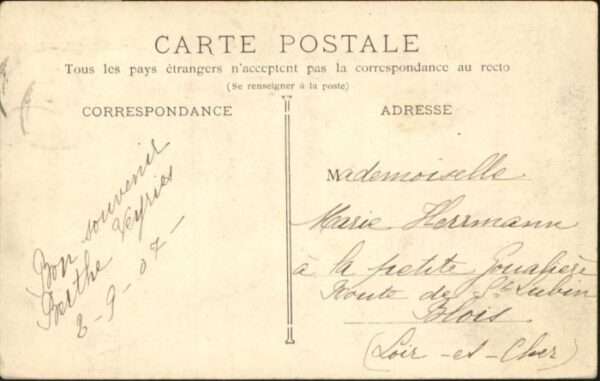 CARTE POSTALE
Tous les pays étrangers n'acceptent pas la correspondance au recto
(Se renseigner à la poste)
CORRESPONDANCE
Bon souvenir
Berthe Veyries
2-9-07-
ADRESSE
Mademoiselle
Marie Herrmann
à la petite
Route de St Lubin
Blois
(Loir-et-Cher)